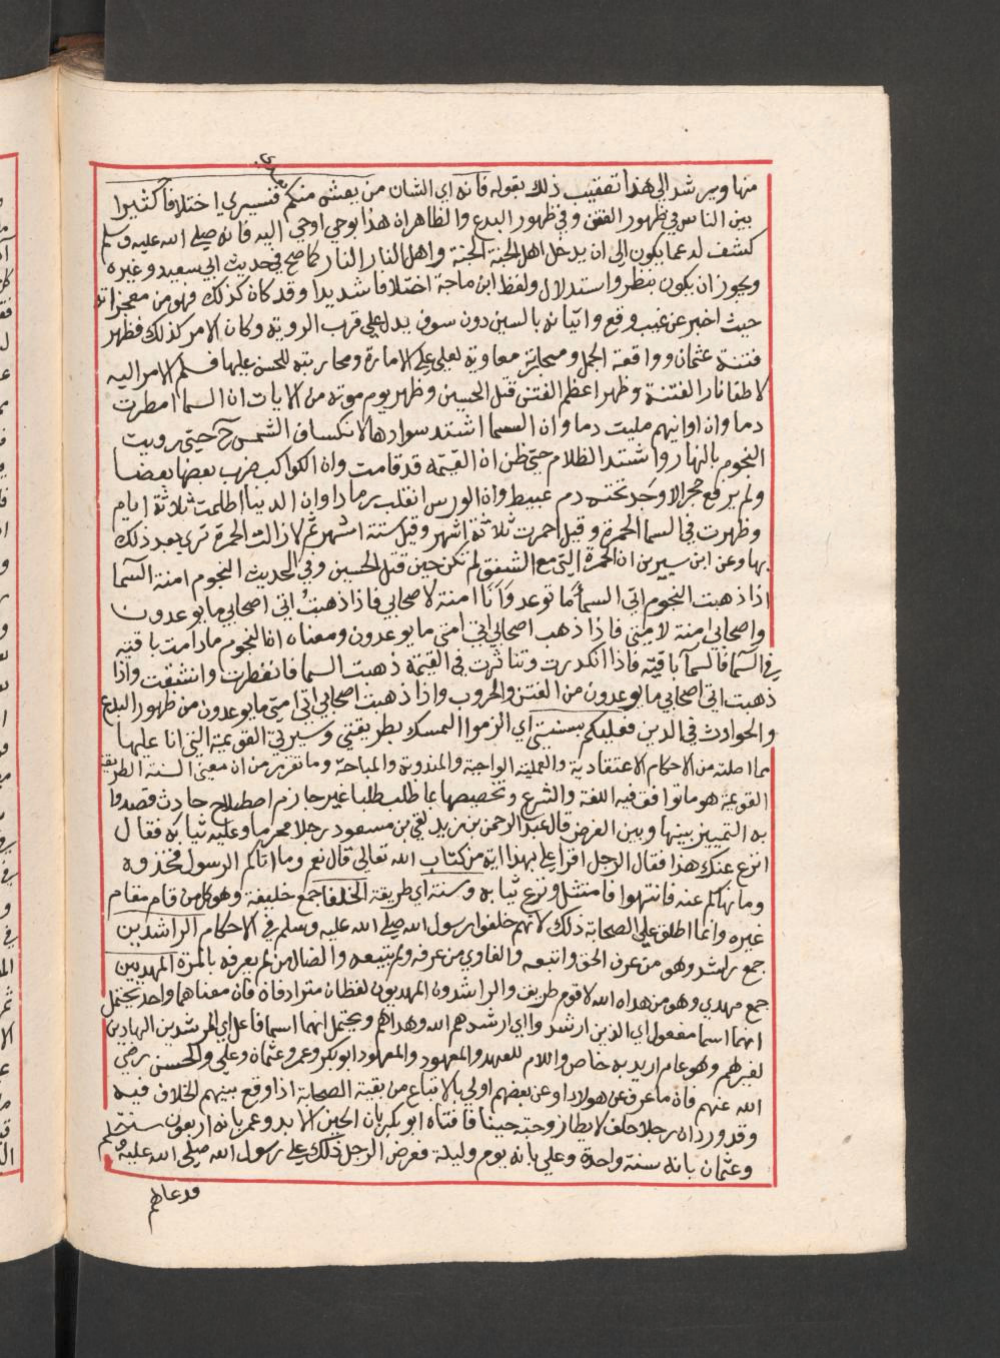 منها ويرشد الي هذا تعقيب ذلك بقوله فانه اي الشان من يعش منكم بعدي فسيري اختلافا كثيرا
بين الناس في ظهور الفتن وفي ظهور البدع والظاهر ان هذا بوحي اوحي اليه فانه صلي الله عليه وسلم
كشف له عما يكون الي ان يدخل اهل الجنة الجنة واهل النار النار كما صح في حديث ابي سعيد وغيره
ويجوز ان يكون بنظر واستدلال ولفظ ابن ماجة اختلافا شديدا وقد كان كذلك فهو من معجزاته
حيث اخبر عن غيب وقع واتيانه بالسين دون سوف يدل علي قرب الروية وكان الامر كذلك فظهر
فتنة عثمان وواقعة الجمل ومحابرة معاوية لعلي علي الامارة ومحاربته للحسن عليها فسلم الامر اليه
لاطفا نار الفتنة وظهر اعظم الفتن قتل الحسين وظهر يوم موته من الايات ان السما امطرت
دما وان اوانيهم مليت دما وان السما اشتد سوادها لانكساف الشمس ح حتي رويت
النجوم بالنهار واشتد الظلام حتي ظن ان القيمة قد قامت وان الكواكب ضرب بعضها بعضا
ولم يرفع حجر الا وجد تحته دم عبيط وان الورس انقلب رمادا وان الدنيا اظلمت ثلاثة ايام
وظهرت في السما الحمرة وقيل احمرت ثلاثة اشهر وقيل ستة اشهر ثم لا زالت الحمرة تري بعد ذلك
بها وعن ابن سيرين ان الحمرة التي مع الشفق لم تكن حين قتل الحسين وفي الحديث النجوم امنة السما
اذا ذهبت النجوم اتي السما ما توعد وانا امنة لاصحابي فاذا ذهبت اتي اصحابي ما يوعدون
واصحابي امنة لامتي فاذا ذهب اصحابي اتي امتي ما يوعدون ومعناه ان النجوم ما دامت باقية
في السما فالسما باقية فاذا انكدرت وتناثرت في القيمة ذهبت السما فانفطرت وانشقت واذا
ذهبت اتي اصحابي ما يوعدون من الفتن والحروب واذا ذهبت اصحابي اتي امتي ما يوعدون من ظهور البدع
والحوادث في الدين فعليكم بسنتي اي الزموا التمسك بطريقتي وسيرتي القويمة التي انا عليها
مما اصلته من الاحكام الاعتقادية والعملية الواجبة والمندوبة والمباحة وما تقرر من ان معني السنة الطريقة
القويمة هو ما توافق فيه اللغة والشرع وتخصيصها بما طلب طلبا غير جازم اصطلاح حادث قصدوا
به التمييز بينها وبين الفرض قال عبد الرحمن بن يزيد لقي بن مسعود رجلا محرما وعليه ثيابه فقال
انزع عنك هذا فقال الرجل اقرا علي بهذا اية من كتاب الله تعالي قال نعم وما اتاكم الرسول فخذوه
وما نهاكم عنه فانتهوا فامتثل ونزع ثيابه وسنة اي طريقة الخلفا جمع خليفة وهو كل من قام مقام
غيره وانما اطلق علي الصحابة ذلك لانهم خلفوا رسول الله صلي الله عليه وسلم في الاحكام الراشدين
جمع راشد وهو من عرف الحق واتبعه والغاوي من عرفه ولم يتبعه والضال من لم يعرفه بالمرة المهديين
جمع مهدي وهو من هداه الله لاقوم طريق والراشدون المهديون لفظان مترادفان فان معناهما واحد يحتمل
انهما اسما مفعول اي الذين ارشدوا اي ارشدهم الله وهداهم ويحتمل انهما اسما فاعل اي المرشدين الهادين
لغيرهم وهو عام اريد به خاص واللام للعهد والمعهود والمعهود ابو بكر وعمر وعثمان وعلي والحسن رضي
الله عنهم فان ما عرف عن هولا او عن بعضهم اولي بالاتباع من بقية الصحابة اذا وقع بينهم الخلاف فيه
وقد ورد ان رجلا حلف لا يطا زوجته حينا فافتاه ابو بكر بان الحين الابد وعمر بانه اربعون سنة
وعثمان بانه سنة واحدة وعلي بانه يوم وليلة فعرض الرجل ذلك علي رسول الله صلي الله عليه وسلم
فدعاهم